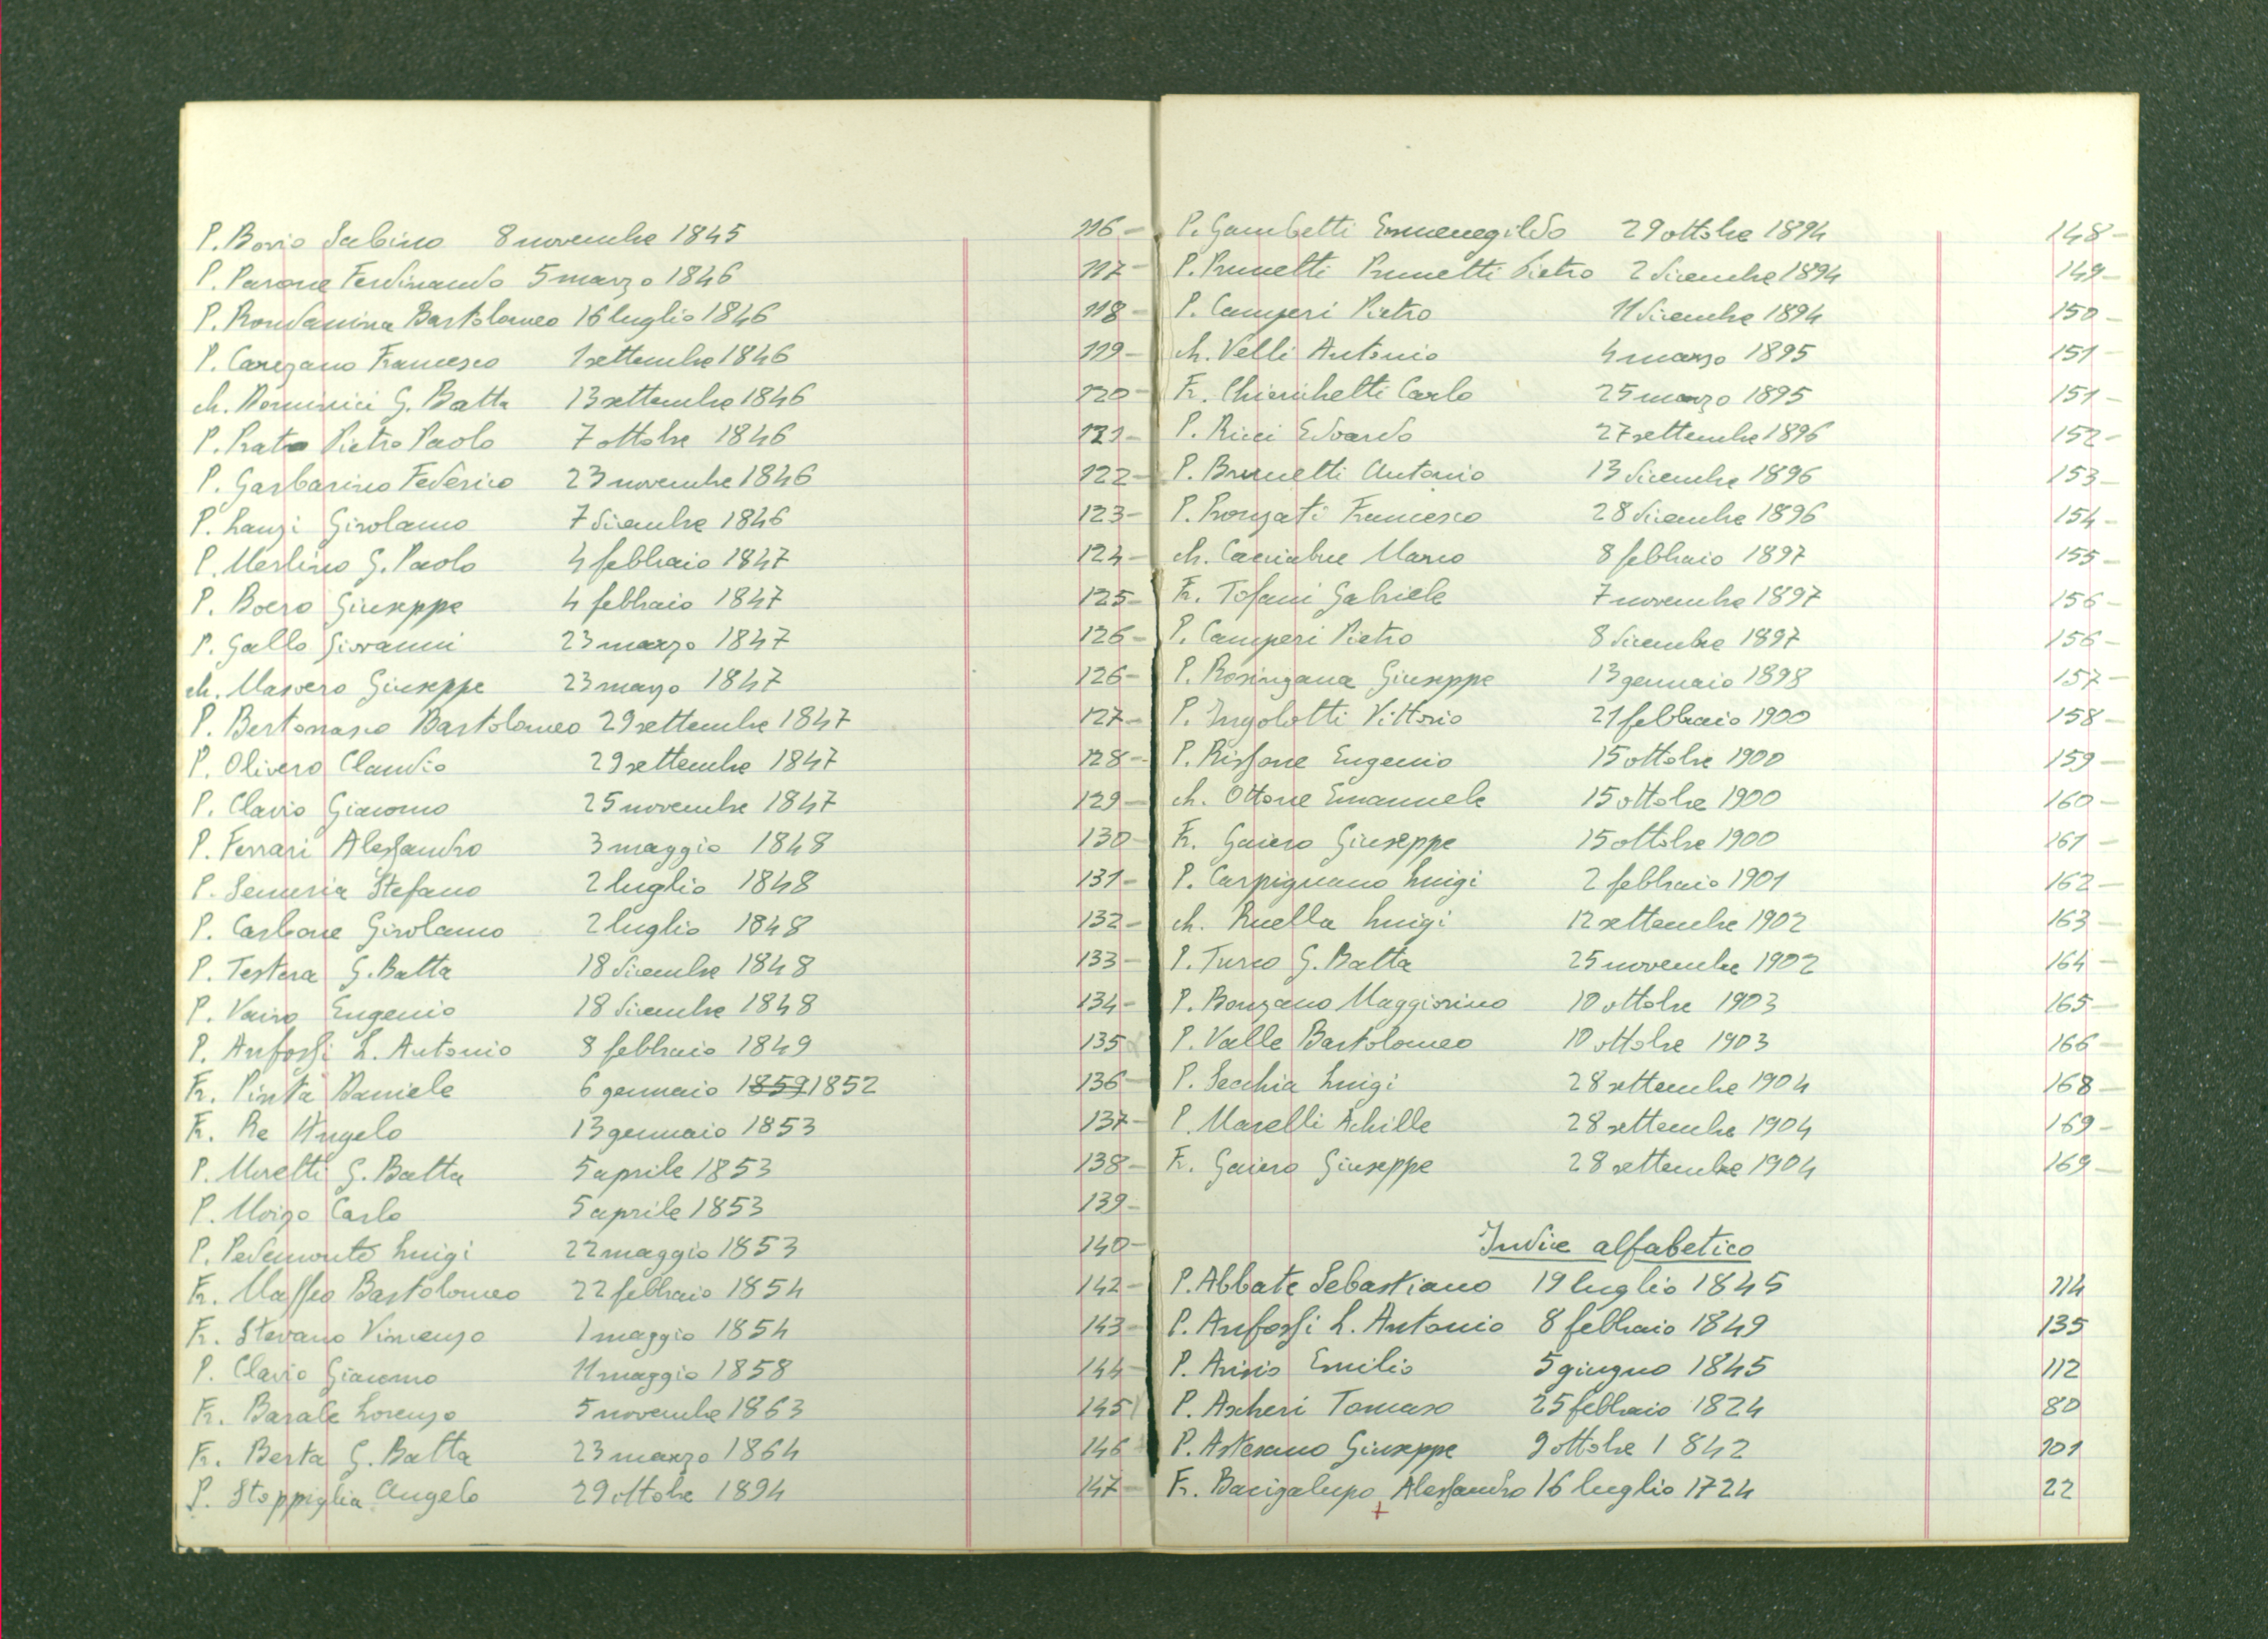 P. Bovio Sabino 8 novembre 1845 116 -
P. Parone Ferdinando 5 marzo 1846 117 -
P. Rondanina Bartolomeo 16 luglio 1846 118 -
P. Caregano Francesco 1 settembre 1846 119 -
ch. Dominici G. Batta 13 settembre 1846 120 -
P. Prato Pietro Paolo 7 ottobre 1846 121 -
P. Garbarino Federico 23 novembre 1846 122 -
P. Lanzi Girolamo 7 dicembre 1846 123 -
P. Merlino G. Paolo 4 febbraio 1847 124 -
P. Boero Giuseppe 4 febbraio 1847 125 -
P. Gallo Giovanni 23 marzo 1847 126 -
ch. Masvero Giuseppe 23 marzo 1847 126 -
P. Bertonasco Bartolomeo 29 settembre 1847 127 -
P. Olivero Claudio 29 settembre 1847 128 -
P. Clavio Giacomo 25 novembre 1847 129 -
P. Ferrari Alessandro 3 maggio 1848 130 -
P. Semeria Stefano 2 luglio 1848 131 -
P. Carbone Girolamo 2 luglio 1848 132 -
P. Testera G. Batta 18 dicembre 1848 133 -
P. Vairo Eugenio 18 dicembre 1848 134 -
P. Anfossi L. Antonio 8 febbraio 1849 135
Fr. Pinta Daniele 6 gennaio 1859 1852 136 -
Fr. Re Angelo 13 gennaio 1853 137 -
P. Moretti G. Batta 5 aprile 1853 138 -
P. Moizo Carlo 5 aprile 1853 139 -
P. Pedemonte Luigi 22 maggio 1853 140 -
Fr. Maffeo Bartolomeo 22 febbraio 1854 142 -
Fr. Stevano Vincenzo 1 maggio 1854 143 -
P. Clavio Giacomo 11 maggio 1858 144 -
Fr. Barale Lorenzo 5 novembre 1863 145
Fr. Berta G. Batta 23 marzo 1864 146
P. Stoppiglia Angelo 29 ottobre 1894 147 -
P. Gambetti Ermenegildo 29 ottobre 1894 148 -
P. Prunetti Prunetti Pietro 2 dicembre 1894 149 -
P. Camperi Pietro 11 dicembre 1894 150 -
ch. Velli Antonio 4 marzo 1895 151 -
Fr. Chierichetti Carlo 25 marzo 1895 151 -
P. Ricci Edoardo 27 settembre 1896 152 -
P. Brunetti Antonio 13 dicembre 1896 153 -
P. Ronzati Francesco 28 dicembre 1896 154 -
ch. Cacciabue Marco 8 febbraio 1897 155 -
Fr. Tofani Gabriele 7 novembre 1897 156 -
P. Camperi Pietro 8 dicembre 1897 156 -
P. Rosingana Giuseppe 13 gennaio 1898 157 -
P. Ingolotti Vittorio 21 febbraio 1900 158 -
P. Rissone Eugenio 15 ottobre 1900 159 -
ch. Ottone Emanuele 15 ottobre 1900 160 -
Fr. Gaiero Giuseppe 15 ottobre 1900 161 -
P. Carpignano Luigi 2 febbraio 1901 162 -
ch. Ruella Luigi 12 settembre 1902 163 -
P. Turco G. Batta 25 novembre 1902 164 -
P. Bonzano Maggiorino 10 ottobre 1903 165 -
P. Valle Bartolomeo 10 ottobre 1903 166 -
P. Secchia Luigi 28 settembre 1904 168 -
P. Marelli Achille 28 settembre 1904 169 -
Fr. Gaiero Giuseppe 28 settembre 1904 169 -
Indice alfabetico
P. Abbate Sebastiano 19 luglio 1845 114
P. Anfossi L. Antonio 8 febbraio 1849 135
P. Arisio Emilio 5 giugno 1845 112
P. Ascheri Tomaso 25 febbraio 1824 80
P. Astesano Giuseppe 9 ottobre 1842 101
Fr. Bacigalupo Alessandro 16 luglio 1724 22
+